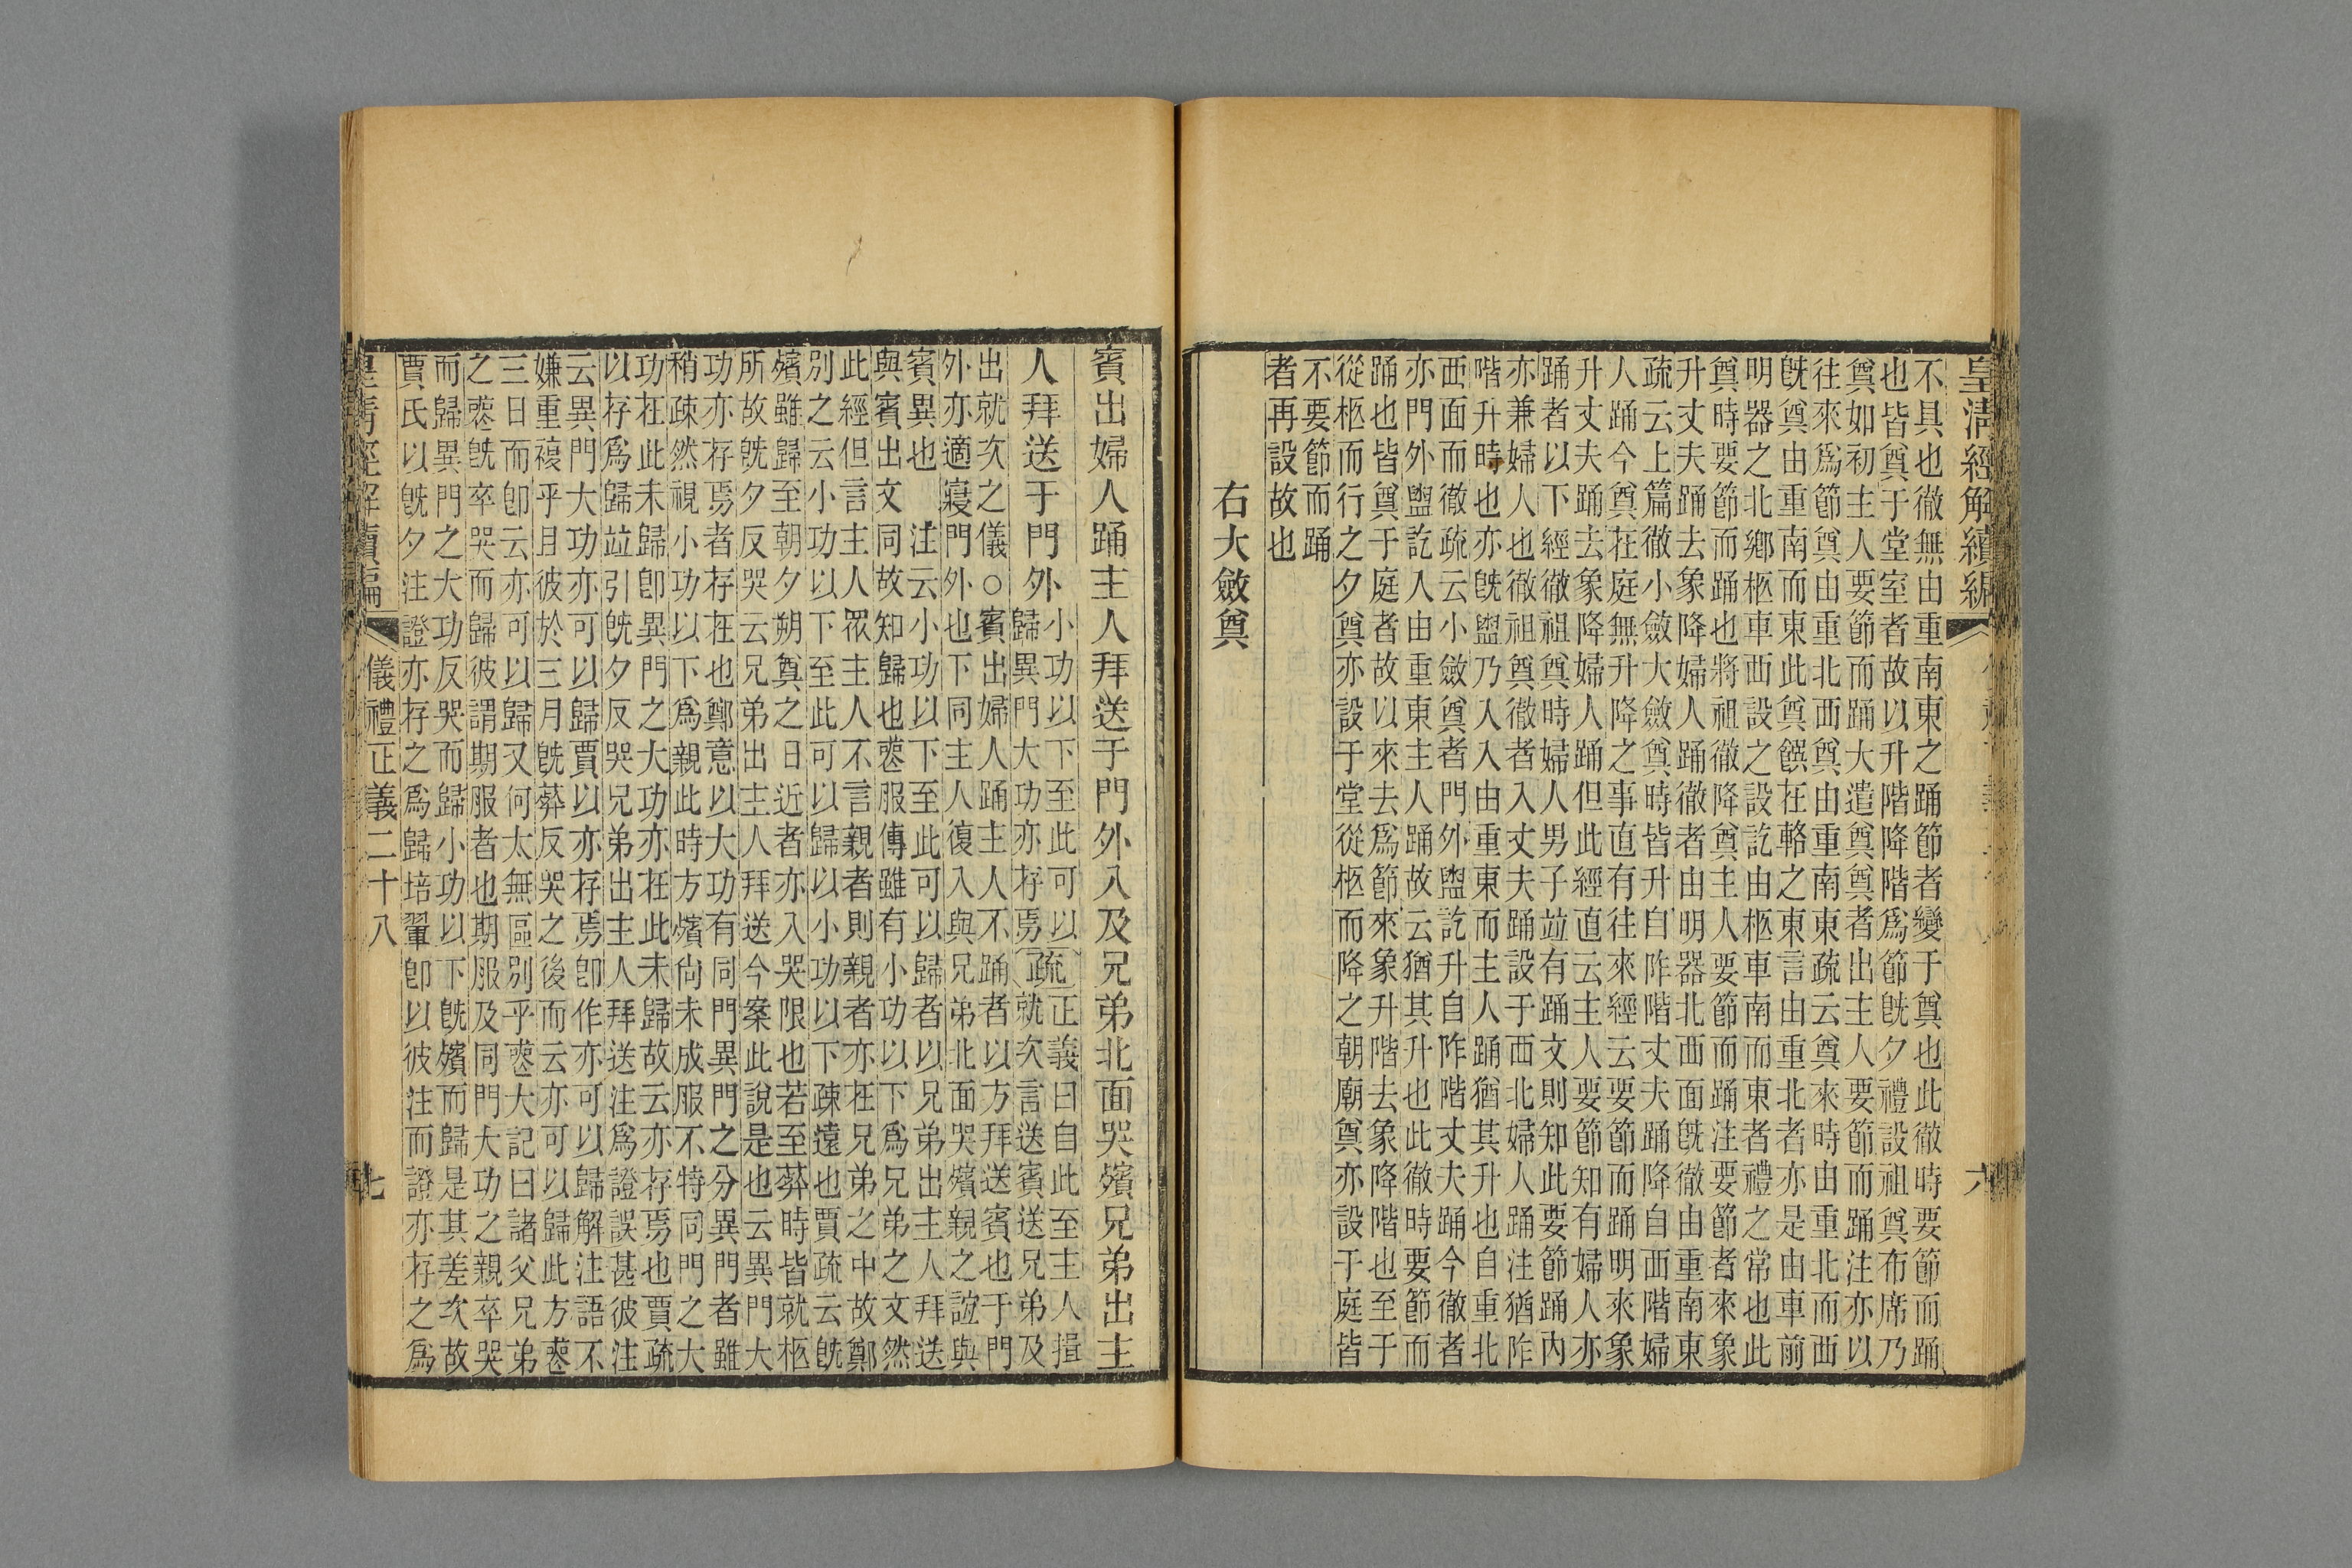 皇清經解續編
六
不具也徹無由重南東之踊節者變于奠也此徹時要節而踊
也皆奠于堂室者故以升階降階爲節旣夕禮設祖奠布席乃
奠如初主人要節而踊大遣奠奠者出主人要節而踊注亦以
往來爲節奠由重北西面奠由重南東疏云奠來時由重北而西
旣奠由重南而東此奠饌在輅之東言由重北者亦是由車前
明器之北鄉柩車西設之設訖由柩車南而東者禮之常也此
奠時要節而踊也將祖徹降奠主人要節而踊注要節者來象
升丈夫踊去象降婦人踊徹者由明器北西面旣徹由重南東
疏云上篇徹小斂大斂奠時皆升自阼階丈夫踊降自西階婦
人踊今奠在庭無升降之事直有往來經云要節而踊明來象
升丈夫踊去象降婦人踊但此經直云主人要節知有婦人亦
踊者以下經徹祖奠時婦人男子竝有踊文則知此要節踊內
亦兼婦人也徹祖奠徹者入丈夫踊設于西北婦人踊注猶阼
階升時也亦旣盥乃入入由重東而主人踊猶其升也自重北
西面而徹疏云小斂奠者門外盥訖升自阼階丈夫踊今徹者
亦門外盥訖入由重東主人踊故云猶其升也此徹時要節而
踊也皆奠于庭者故以來去爲節來象升階去象降階也至于
從柩而行之夕奠亦設于堂從柩而降之朝廟奠亦設于庭皆
不要節而踊
者再設故也
右大斂奠
賓出婦人踊主人拜送于門外入及兄弟北面哭殯兄弟出主
人拜送于門外
小功以下至此可以
歸異門大功亦存焉
疏
正義曰自此至主人揖
就次言送賓送兄弟及
出就次之儀○賓出婦人踊主人不踊者以方拜送賓也于門
外亦適寢門外也下同主人復入與兄弟北面哭殯親之誼與
賓異也 注云小功以下至此可以歸者以兄弟出主人拜送
與賓出文同故知歸也喪服傳雖有小功以下爲兄弟之文然
此經但言主人眾主人不言親者則親者亦在兄弟之中故鄭
別之云小功以下至此可以歸以小功以下疎遠也賈疏云旣
殯雖歸至朝夕朔奠之日近者亦入哭限也若至葬時皆就柩
所故旣夕反哭云兄弟出主人拜送今案此說是也云異門大
功亦存焉者存在也鄭意以大功有同門異門之分異門者雖
稍疎然視小功以下爲親此時方殯尙未成服不特同門之大
功在此未歸卽異門之大功亦在此未歸故云亦存焉也賈疏
以存爲歸竝引旣夕反哭兄弟出主人拜送注爲證誤甚彼注
云異門大功亦可以歸賈以亦存焉卽作亦可以歸解注語不
嫌重複乎且彼於三月旣葬反哭之後而云亦可以歸此方喪
三日而卽云亦可以歸又何太無區別乎喪大記曰諸父兄弟
之喪旣卒哭而歸彼謂期服者也期服及同門大功之親卒哭
而歸異門之大功反哭而歸小功以下旣殯而歸是其差次故
賈氏以旣夕注證亦存之爲歸培翬卽以彼注而證亦存之爲
皇清經解續編
儀禮正義二十八
七